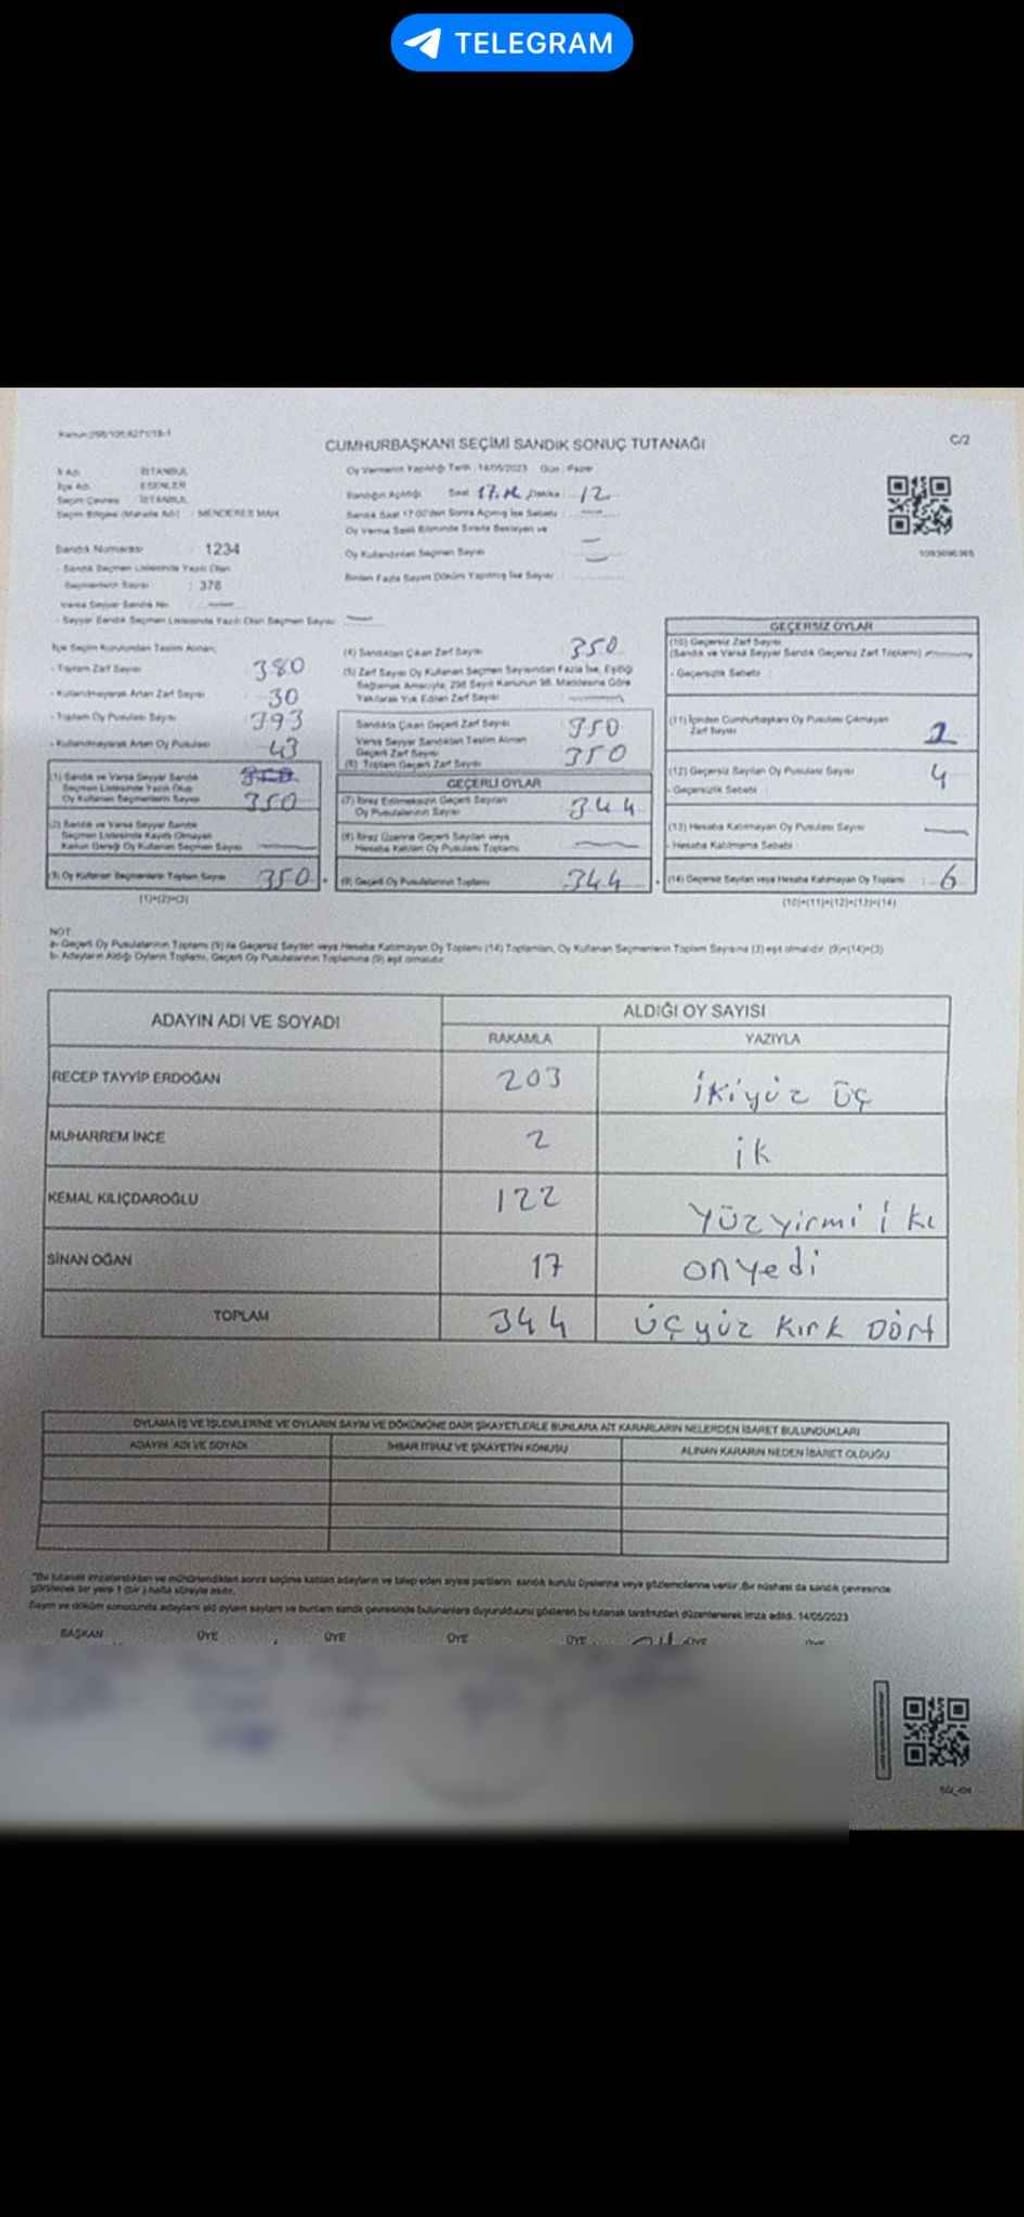 TELEGRAM
C/2
CUMHURBAŞKANI SEÇİMİ SANDIK SONUÇ TUTANAĞI
İl Adı : İSTANBUL
İlçe Adı : ESENLER
Seçim Çevresi : İSTANBUL
Seçim Bölgesi (Mahalle Adı) : MENDERES MAH.
Oy Vermenin Yapıldığı Tarih : 14/05/2023 Gün : Pazar
Sandığın Açıldığı Saat Dakika : 12
Sandık Saat 17:00'den Sonra Açılmış İse Sebebi
Oy Verme Saati Bitiminde Sırada Bekleyen ve
Oy Kullandırılan Seçmen Sayısı
Birden Fazla Sayım Döküm Yapılmış İse Sayısı
Sandık Numarası : 1234
- Sandık Seçmen Listesinde Yazılı Olan
Seçmenlerin Sayısı : 378
Varsa Seyyar Sandık No
- Seyyar Sandık Seçmen Listesinde Yazılı Olan Seçmen Sayısı
İlçe Seçim Kurulundan Teslim Alınan;
- Toplam Zarf Sayısı 380
- Kullanılmayarak Artan Zarf Sayısı 30
- Toplam Oy Pusulası Sayısı 393
- Kullanılmayarak Artan Oy Pusulası 43
(1) Sandık ve Varsa Seyyar Sandık
Seçmen Listesinde Yazılı Olup
Oy Kullanan Seçmenlerin Sayısı 350
(2) Sandık ve Varsa Seyyar Sandık
Seçmen Listesinde Kayıtlı Olmayan
Kanun Gereği Oy Kullanan Seçmen Sayısı
(3) Oy Kullanan Seçmenlerin Toplam Sayısı 350
(1)+(2)=(3)
(4) Sandıktan Çıkan Zarf Sayısı 350
(5) Zarf Sayısı Oy Kullanan Seçmen Sayısından Fazla İse, Eşitliği
Sağlamak Amacıyla, 298 Sayılı Kanunun 98. Maddesine Göre
Yakılarak Yok Edilen Zarf Sayısı
Sandıkta Çıkan Geçerli Zarf Sayısı 350
Varsa Seyyar Sandıktan Teslim Alınan
Geçerli Zarf Sayısı
(6) Toplam Geçerli Zarf Sayısı 350
GEÇERLİ OYLAR
(7) İtiraz Edilmeksizin Geçerli Sayılan
Oy Pusulalarının Sayısı 344
(8) İtiraz Üzerine Geçerli Sayılan veya
Hesaba Katılan Oy Pusulası Toplamı
(9) Geçerli Oy Pusulalarının Toplamı 344
GEÇERSİZ OYLAR
(10) Geçersiz Zarf Sayısı
(Sandık ve Varsa Seyyar Sandık Geçersiz Zarf Toplamı)
- Geçersizlik Sebebi :
(11) İçinden Cumhurbaşkanı Oy Pusulası Çıkmayan
Zarf Sayısı
(12) Geçersiz Sayılan Oy Pusulası Sayısı 4
- Geçersizlik Sebebi
(13) Hesaba Katılmayan Oy Pusulası Sayısı
- Hesaba Katılmama Sebebi
(14) Geçersiz Sayılan veya Hesaba Katılmayan Oy Toplamı : 6
(10)+(11)+(12)+(13)=(14)
NOT:
a- Geçerli Oy Pusulalarının Toplamı (9) ile Geçersiz Sayılan veya Hesaba Katılmayan Oy Toplamı (14) Toplamları, Oy Kullanan Seçmenlerin Toplam Sayısına (3) eşit olmalıdır. (9)+(14)=(3)
b- Adayların Aldığı Oyların Toplamı, Geçerli Oy Pusulalarının Toplamına (9) eşit olmalıdır.
ADAYIN ADI VE SOYADI
ALDIĞI OY SAYISI
RAKAMLA YAZIYLA
RECEP TAYYİP ERDOĞAN 203 ikiyüz üç
MUHARREM İNCE 2 ik
KEMAL KILIÇDAROĞLU 122 Yüzyirmi iki
SİNAN OĞAN 17 onyedi
TOPLAM 344 üçyüz kırk Dört
OYLAMA İŞ VE İŞLEMLERİNE VE OYLARIN SAYIM VE DÖKÜMÜNE DAİR ŞİKAYETLERLE BUNLARA AİT KARARLARIN NELERDEN İBARET BULUNDUKLARI
ADAYIN ADI VE SOYADI İHBAR İTİRAZ VE ŞİKAYETİN KONUSU ALINAN KARARIN NEDEN İBARET OLDUĞU
"Bu tutanak imzalandıktan ve mühürlendikten sonra seçime katılan adayların ve talep eden siyasi partilerin sandık kurulu üyelerine veya gözlemcilerine verilir. Bir nüshası da sandık çevresinde
görülecek bir yere 1 (bir) hafta süreyle asılır.
Sayım ve döküm sonucunda adayların aldığı oyların sayılarını ve bunların sandık çevresinde bulunanlara duyurulduğunu gösteren bu tutanak tarafımızdan düzenlenerek imza edildi. 14/05/2023
BAŞKAN ÜYE ÜYE ÜYE ÜYE ÜYE ÜYE